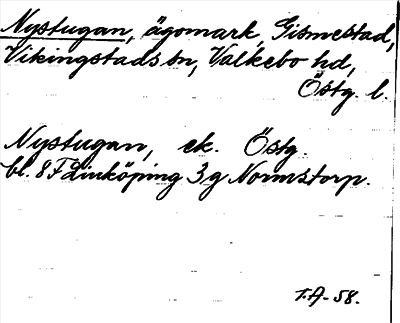 Nystugan, ägomark, Gismestad,
Vikingstads sn, Valkebo hd,
Östg. l.
Nystugan, ek. Östg.
bl. 8 F Linköping 3 g Normstorp.
T.A-58.